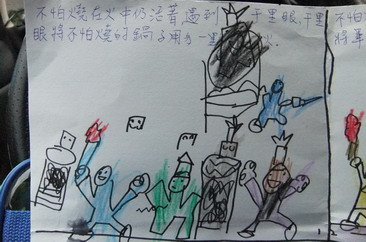 不怕燒在火中仍活著遇到 千里眼,千里
眼將不怕燒的鍋子用力一 火。
不怕
將單
1 2